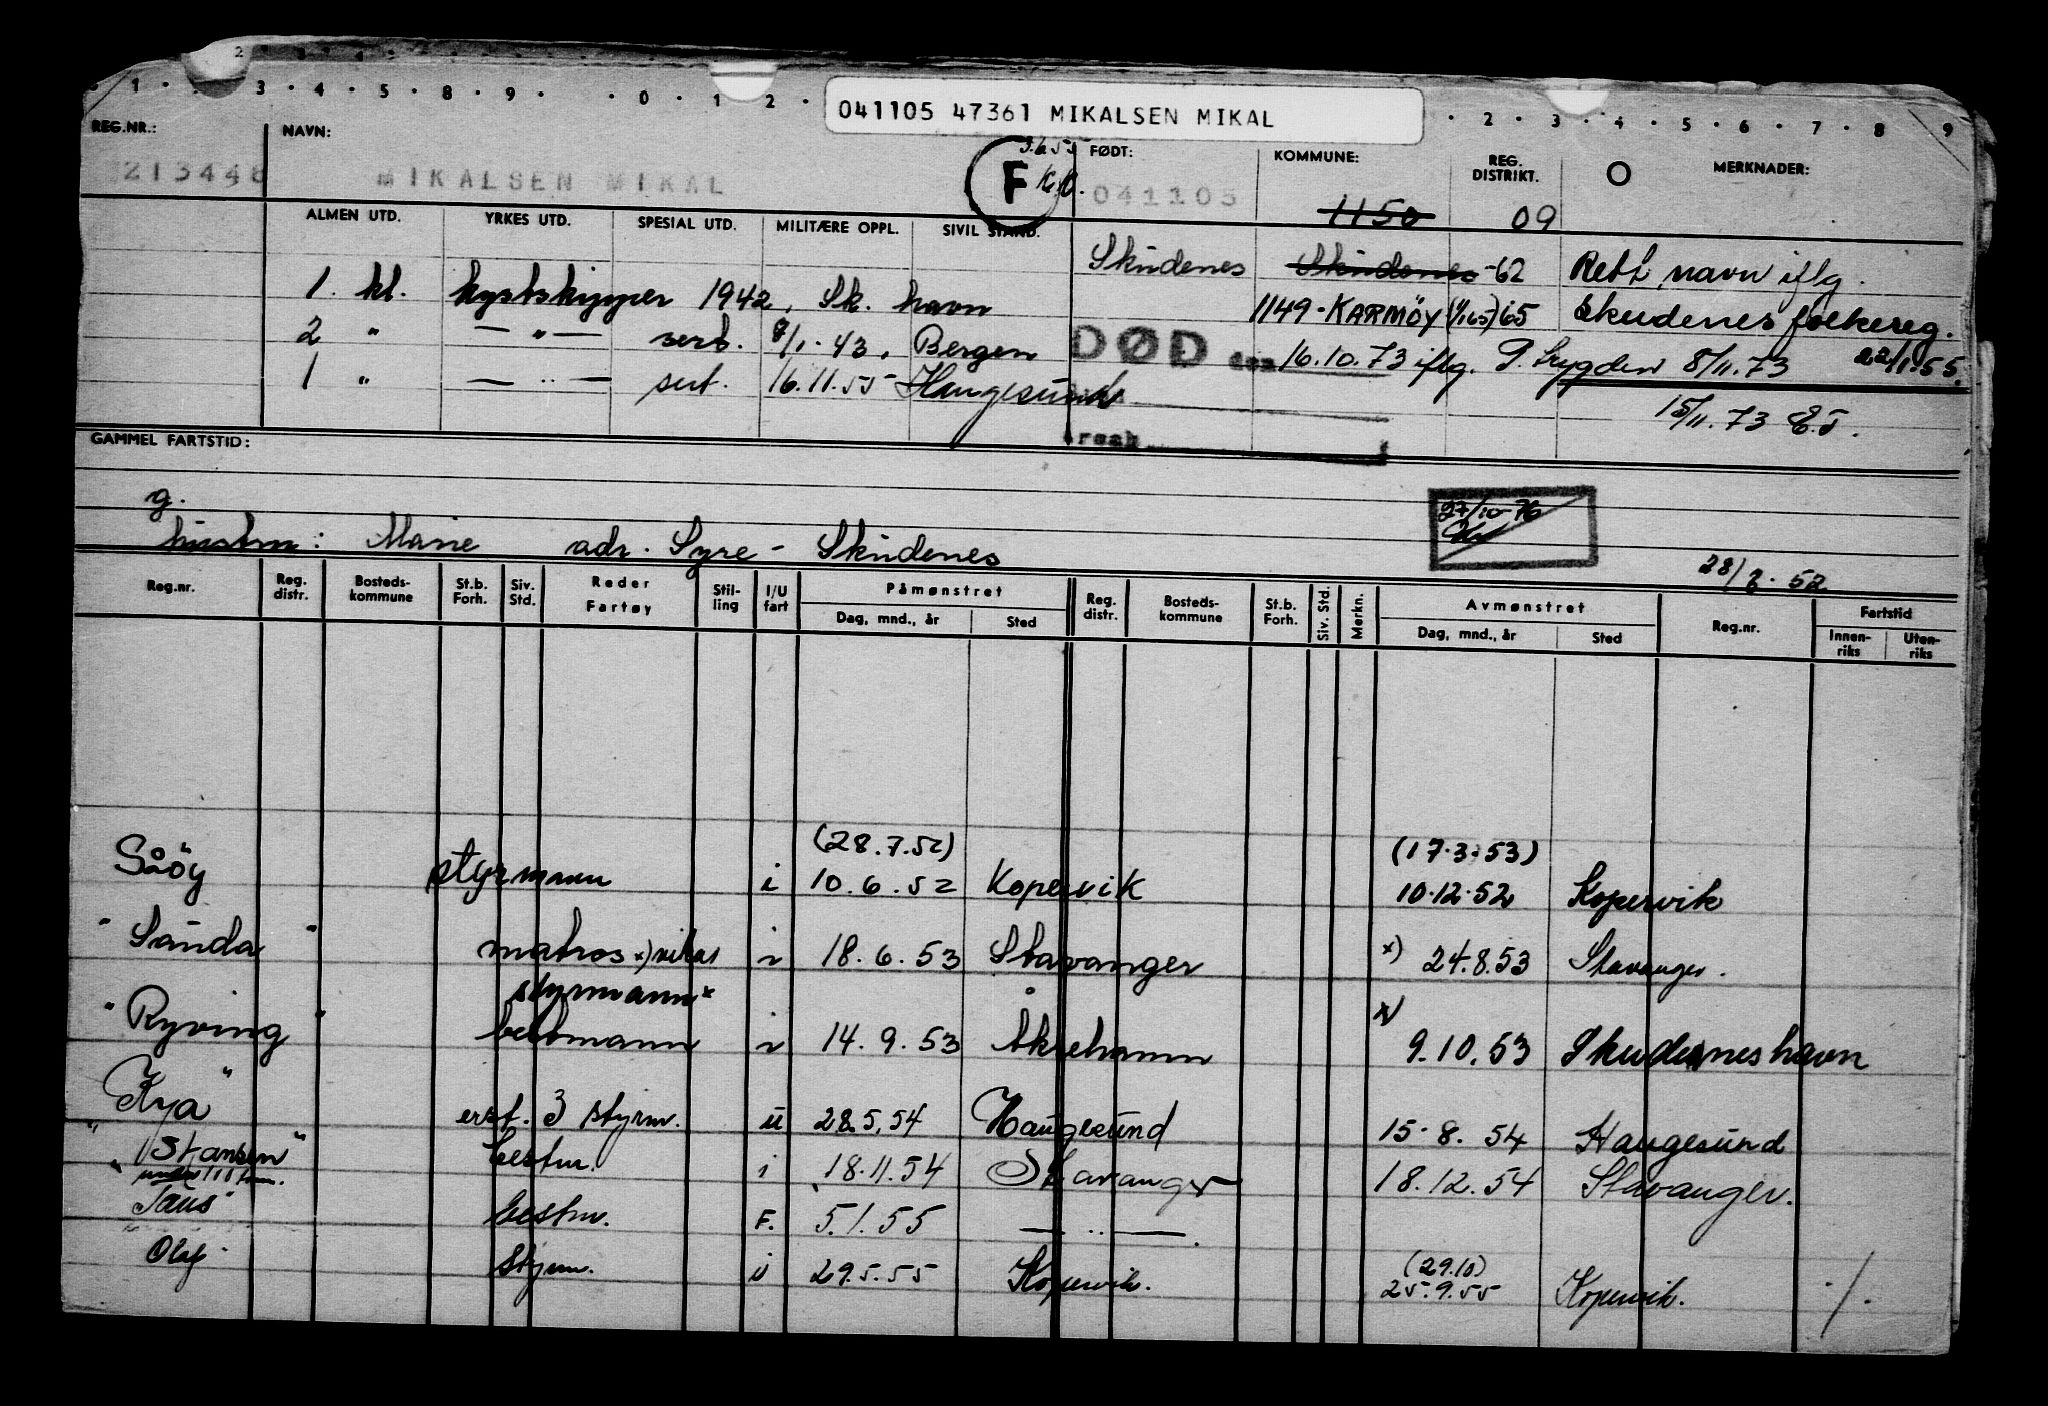 2 3 4
1 · · 3 · 4 · 5 · 8 · 9 · · 0 · 1 · 2 · · 2 · 3 · 4 · 5 · 6 · 7 · 8 9
041105 47361 MIKALSEN MIKAL
REG.NR.: NAVN: FØDT: KOMMUNE: REG. DISTRIKT. MERKNADER:
3.6.55
213448 MIKALSEN MIKAL F 041105 1150 09
ALMEN UTD. YRKES UTD. SPESIAL UTD. MILITÆRE OPPL. SIVIL STAND.
Skudenes Skudenes -62 Rett navn iflg.
1. kl. kystskipper 1942, Sk. havn 1149 - KARMÖY (1/1.65) 65 Skudenes folkereg.
2 " — " — sert. 8/1 - 43, Bergen DØD den 16.10.73 iflg. P. trygden 8/11.73 22/1.55.
1 " — " — sert. 16.11.55 Haugesund
15/11.73 E.J.
GAMMEL FARTSTID:
g.
hustru: Marie adr. Syre - Skudenes
27/10-76
28/8.52
Reg.nr. Reg. distr. Bosteds-kommune St.b. Forh. Siv. Std. Reder Fartøy Stil-ling I/U fart Påmønstret Dag, mnd., år Sted Reg. distr. Bosteds-kommune St.b. Forh. Siv. Std. Merkn. Avmønstret Dag, mnd., år Sted Reg.nr. Fartstid Innen-riks Uten-riks
(28.7.52) (17.3.53)
Såöy styrmann i 10.6.52 Kopervik 10.12.52 Kopervik
"Sanda" matros x) vikar i 18.6.53 Stavanger x) 24.8.53 Stavanger.
styrmann x
"Ryving" bestmann i 14.9.53 Åkrehamn x) 9.10.53 Skudesneshavn
Kya" erst. 3 styrm. u 28.5.54 Haugesund 15.8.54 Haugesund
"Stansen" bestm. i 18.11.54 Stavanger 18.12.54 Stavanger.
"Taus" bestm. F. 5.1.55 — " —.
(29.10)
Olaf styrm. u 29.5.55 Kopervik. 25.9.55 Kopervik.